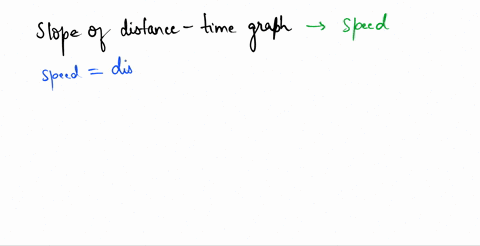 Slope of distance - time graph → speed
speed = dis